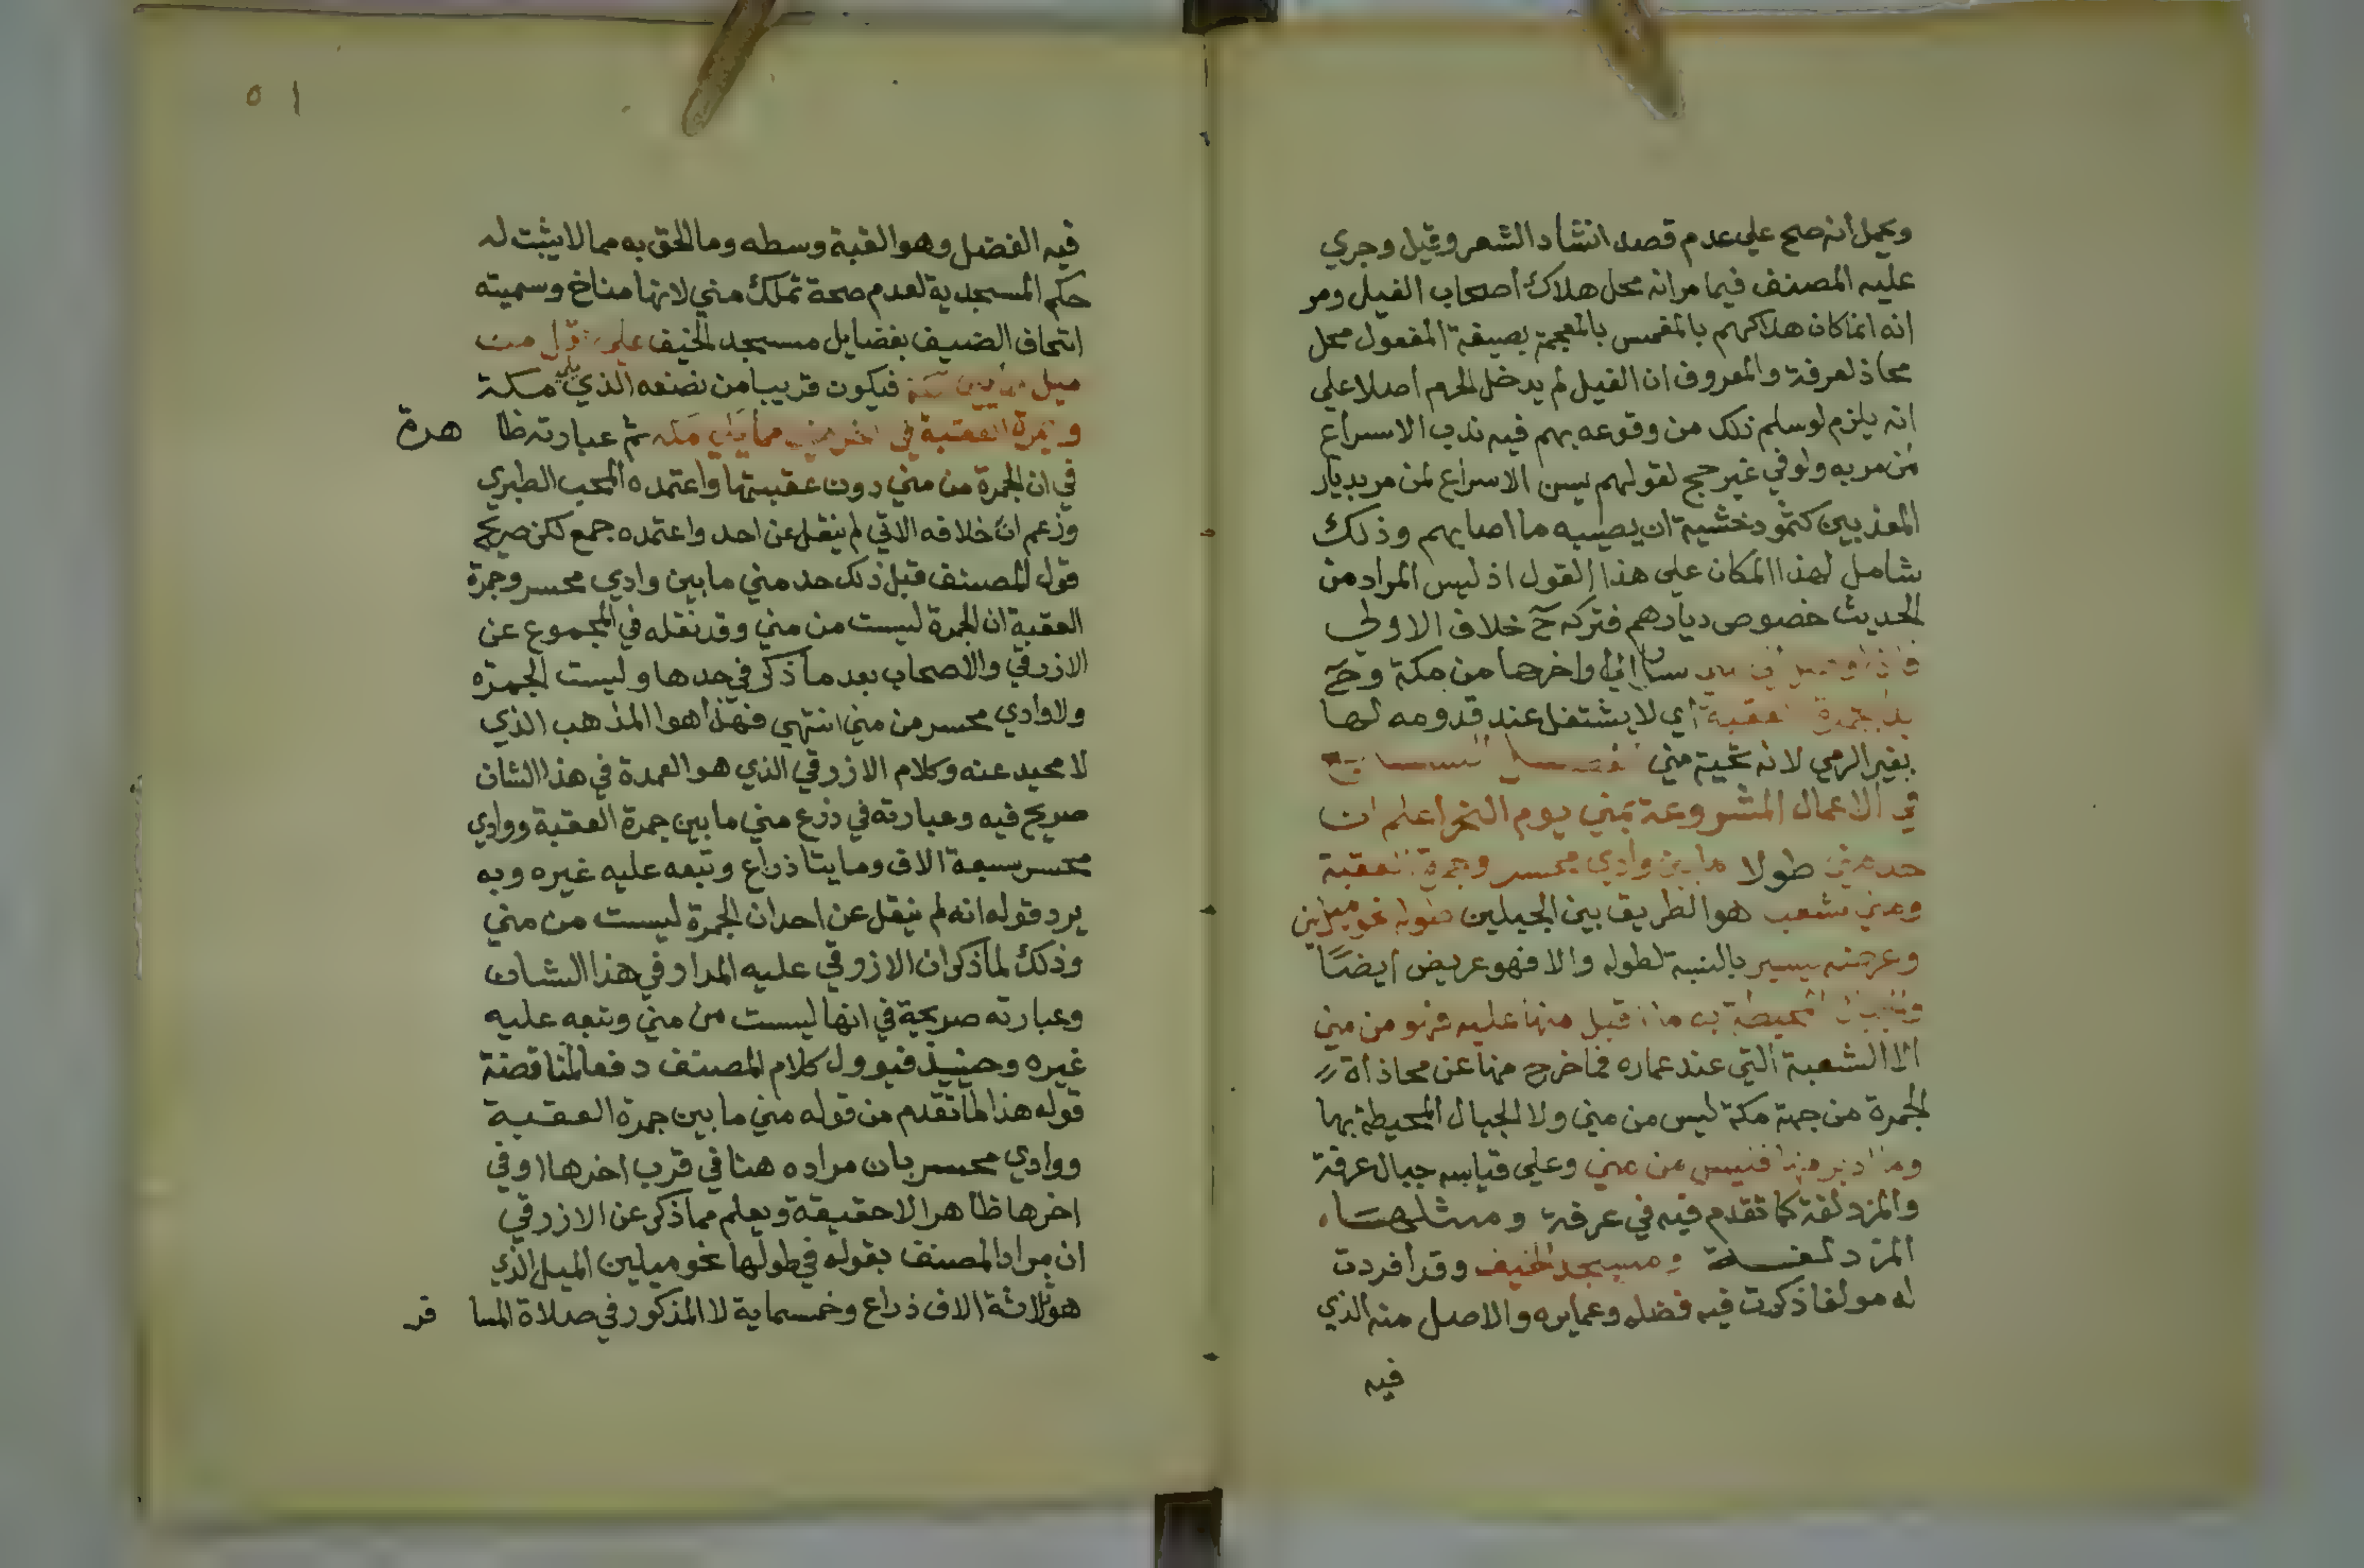 ويحمل أنه صح علي عدم قصد انشاد الشعر وقيل وجري
عليه المصنف فيما مر انه محل هلاك أصحاب الفيل ومر
انه انما كان هلاكهم بالمغمس بالمعجمة بصيغة المفعول محل
محاذ لعرفة والمعروف ان الفيل لم يدخل الحرم أصلا علي
انه يلزم لو سلم ذلك من وقوعه بهم فيه ندب الاسراع
لمن مر به ولو في غير حج لقولهم يسن الاسراع لمن مر بديار
المعذبين كثمود خشية ان يصيبه ما اصابهم وذلك
شامل لهذا المكان علي هذا القول اذ ليس المراد من
الحديث خصوص ديارهم فتركه ح خلاف الاولي
مني واخرها من مكة وح
جمرة العقبة أي لا يشتغل عند قدومه لها
بغير الرمي لانه تحية مني
في الاعمال المشروعة بمني يوم النحر اعلم ان
حد مني طولا ما بين وادي محسر وجمرة العقبة
ومني شعب هو الطريق بين الجبلين طوله نحو ميلين
وعرضه يسير بالنسبة لطوله والا فهو عريض أيضًا
والجبال المحيطة به ما اقبل منها عليه فهو من مني
الا الشعبة التي عند عماره فما خرج منها عن محاذاة
الجمرة من جهة مكة ليس من مني ولا الجبال المحيطة بها
وما ادبر منها فليس من مني وعلي قياسه جبال عرفة
والمزدلفة كما تقدم فيه في عرفة ومثلها
المزدلفة ومسجد الخيف وقد أفردت
له مولفا ذكرت فيه فضله وعمايره والاصل منه الذي
فيه
٥١
فيه الفضل وهو القبة وسطه وما الحق به مما لا يثبت له
حكم المسجدية لعدم صحة تملك مني لانها مناخ وسميته
اتحاف الضيف بفضايل مسجد الخيف علي اقل من
ميل مما يلي مكة فيكون قريبا من نصفه الذي يلي مكة
وجمرة العقبة في اخر مني مما يلي مكة ثم عبارته ظا هرة
في ان الجمرة من مني دون عقبتها واعتمده المحب الطبري
وزعم ان خلافه الاتي لم ينقل عن احد واعتمده جمع لكن صريح
قول المصنف قبل ذلك حد مني ما بين وادي محسر وجمرة
العقبة ان الجمرة ليست من مني وقد نقله في المجموع عن
الازرقي والاصحاب بعد ما ذكر في حدها وليست الجمرة
ولا وادي محسر من مني انتهي فهذا هو المذهب الذي
لا محيد عنه وكلام الازرقي الذي هو العمدة في هذا الشان
صريح فيه وعبارته في ذرع مني ما بين جمرة العقبة ووادي
محسر سبعة الاف ومايتا ذراع وتبعه عليه غيره وبه
يرد قوله انه لم ينقل عن احد ان الجمرة ليست من مني
وذلك لما ذكر ان الازرقي عليه المدار في هذا الشان
وعبارته صريحة في انها ليست من مني وتبعه عليه
غيره وحينيذ فيوول كلام المصنف دفعا لمناقضة
قوله هذا لما تقدم من قوله مني ما بين جمرة العقبة
ووادي محسر بان مراده هنا في قرب اخرها او في
اخرها ظاهرا لا حقيقة ويعلم مما ذكر عن الازرقي
ان مراد المصنف بقوله في طولها نحو ميلين الميل الذي
هو ثلاثة الاف ذراع وخمسماية لا المذكور في صلاة المسا فر